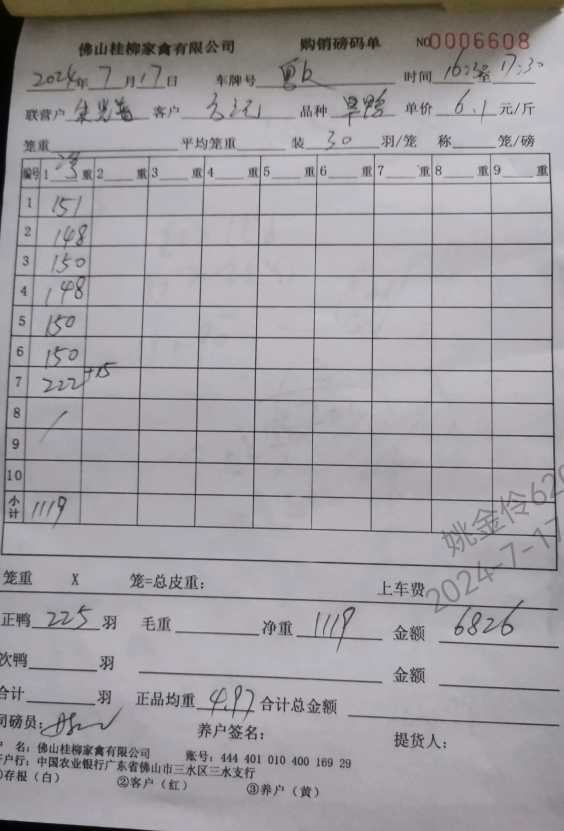 佛山桂柳家禽有限公司 购销磅码单 NO 0006608
2024年7月17日 车牌号 时间 16:30至17:30
联营户 客户 品种 旱鸭 单价 6.1 元/斤
笼重 平均笼重 装 30 羽/笼 称 笼/磅
编号 1 净 重 2 重 3 重 4 重 5 重 6 重 7 重 8 重 9 重
1 151
2 148
3 150
4 148
5 150
6 150
7 222 +15
8
9
10
小计 1119
姚金伶620
2024-7-17
笼重 X 笼=总皮重: 上车费
正鸭 225 羽 毛重 净重 1119 金额 6826
次鸭 羽 金额
合计 羽 正品均重 4.97 合计总金额
司磅员: 养户签名: 提货人:
户 名: 佛山桂柳家禽有限公司 账号: 444 401 010 400 169 29
开户行: 中国农业银行广东省佛山市三水区三水支行
①存根(白) ②客户(红) ③养户(黄)